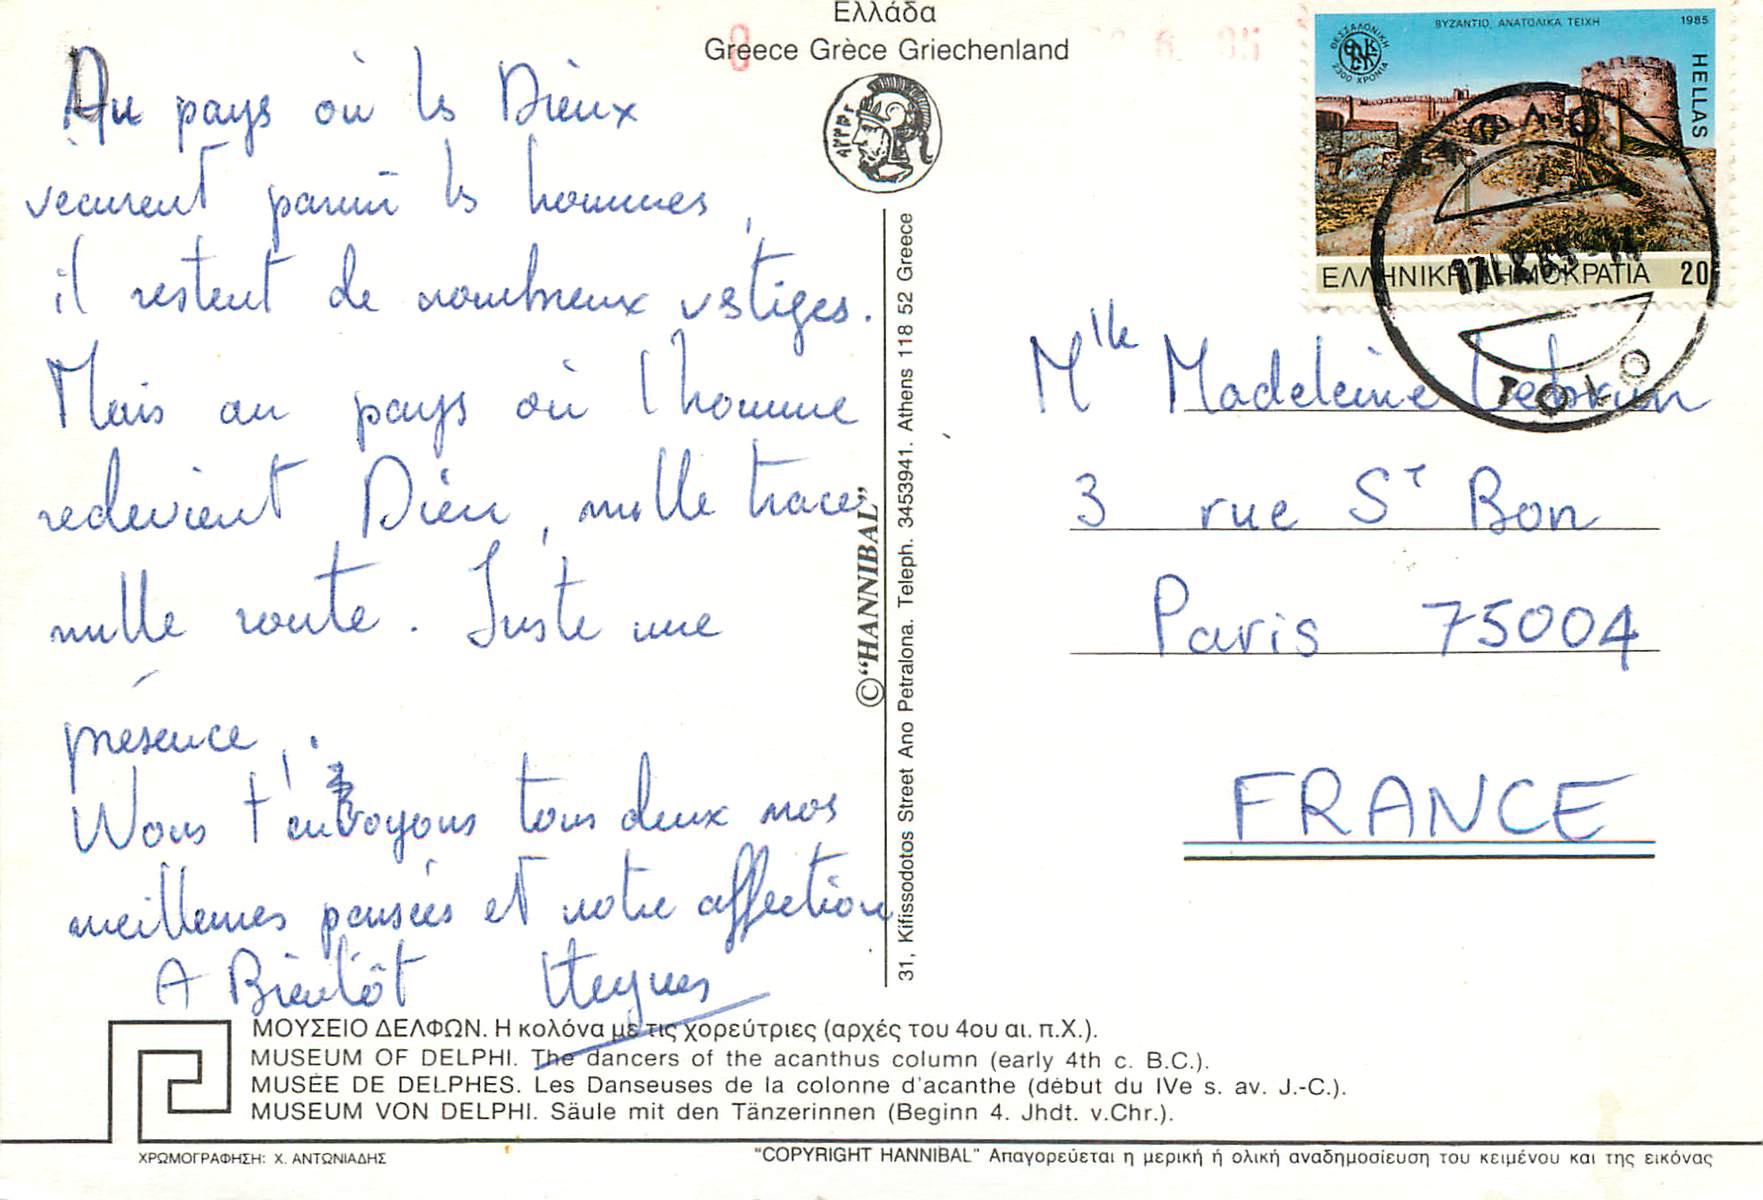 Ελλάδα
Greece Grèce Griechenland
Au pays où les Dieux
vecurent parmi les hommes,
il restent de nombreux vestiges.
Mais au pays où l'homme
redevient Dieu, nulle trace,
nulle route. Juste une
présence.
Nous t'envoyons tous deux nos
meilleures pensées et notre affection
A Bientôt
©"HANNIBAL"
31, Kifissodotos Street Ano Petralona. Teleph. 3453941. Athens 118 52 Greece
ΒΥΖΑΝΤΙΟ, ΑΝΑΤΟΛΙΚΑ ΤΕΙΧΗ 1985
ΘΕΣΣΑΛΟΝΙΚΗ
2300 ΧΡΟΝΙΑ
HELLAS
ΕΛΛΗΝΙΚΗ ΔΗΜΟΚΡΑΤΙΑ 20
Mlle Madeleine Lebrun
3 rue St Bon
Paris 75004
FRANCE
ΜΟΥΣΕΙΟ ΔΕΛΦΩΝ. Η κολόνα με τις χορεύτριες (αρχές του 4ου αι. π.Χ.).
MUSEUM OF DELPHI. The dancers of the acanthus column (early 4th c. B.C.).
MUSÉE DE DELPHES. Les Danseuses de la colonne d'acanthe (début du IVe s. av. J.-C.).
MUSEUM VON DELPHI. Säule mit den Tänzerinnen (Beginn 4. Jhdt. v.Chr.).
ΧΡΩΜΟΓΡΑΦΗΣΗ: Χ. ΑΝΤΩΝΙΑΔΗΣ
"COPYRIGHT HANNIBAL" Απαγορεύεται η μερική ή ολική αναδημοσίευση του κειμένου και της εικόνας